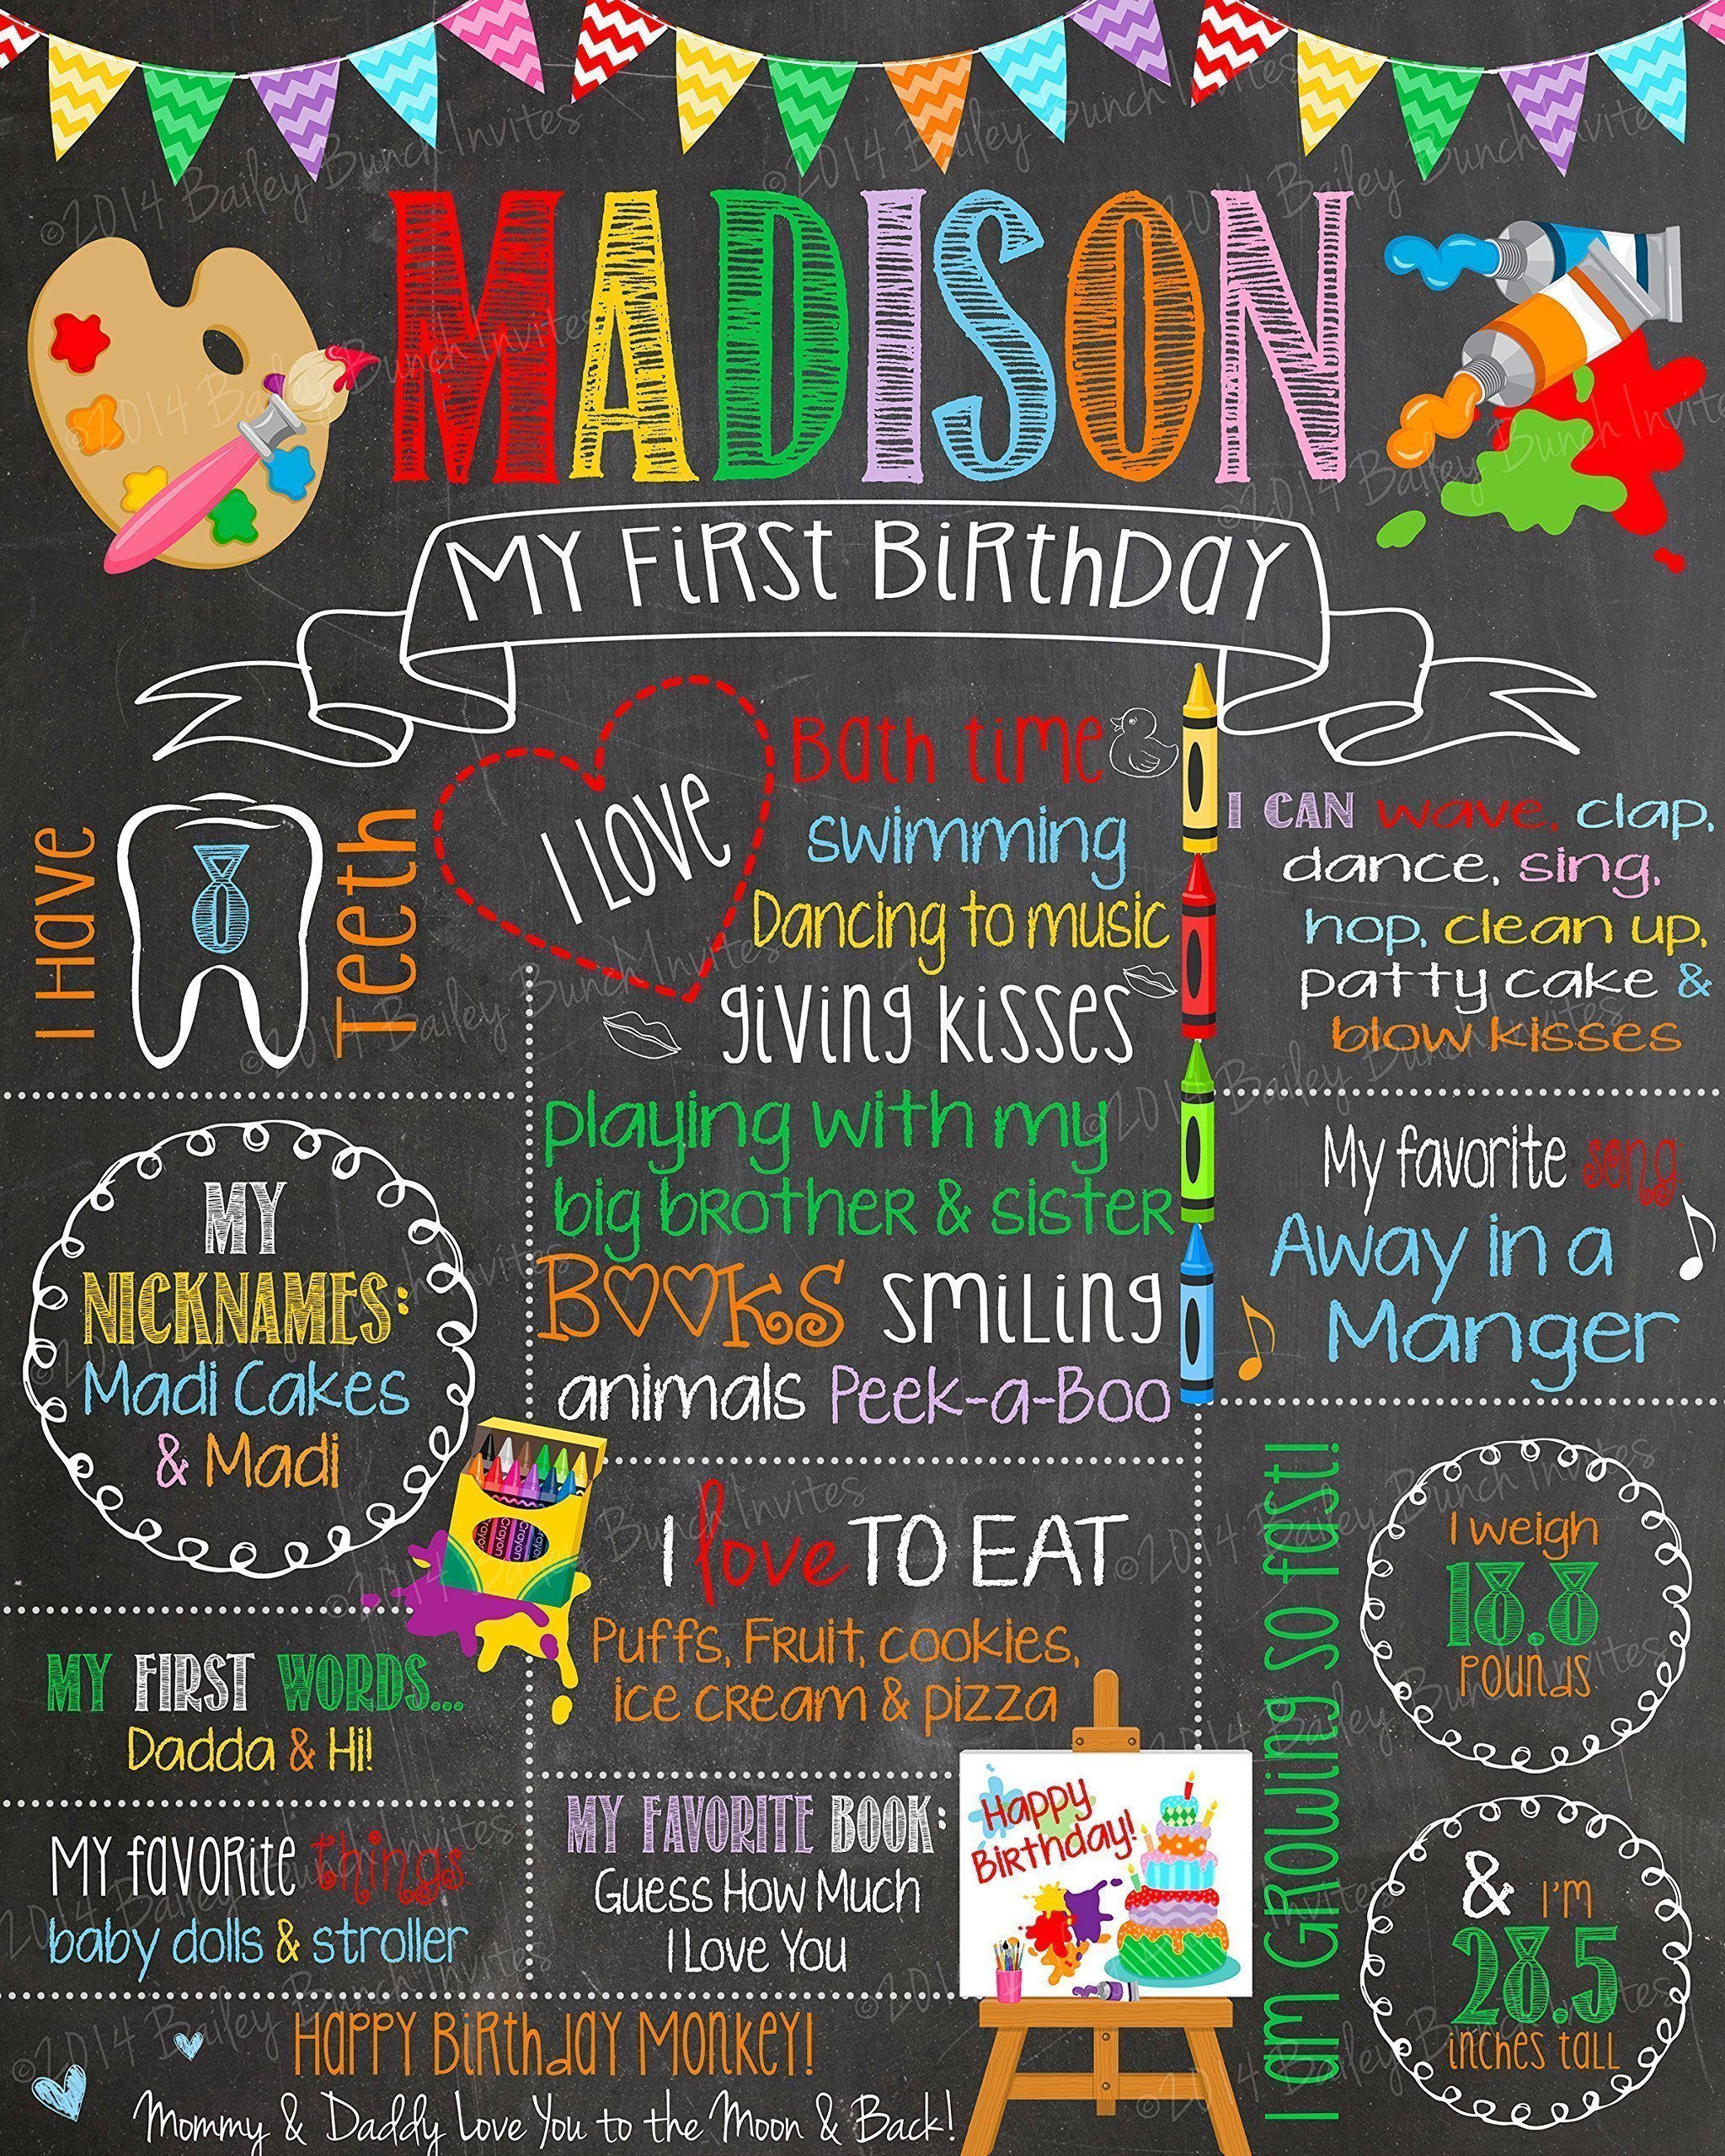 MADISON
MY FIRST BIRTHDAY
I Have
8
Teeth
I LOVE
Bath time
swimming
Dancing to music
giving kisses
playing with my
big brother & sister
BOOKS smiling
animals Peek-a-Boo
I CAN wave, clap,
dance, sing,
hop, clean up,
patty cake &
blow kisses
My favorite song
Away in a
Manger
MY
NICKNAMES:
Madi Cakes
& Madi
Crayon Crayon Crayon Crayon
I love TO EAT
Puffs, Fruit, cookies,
ice cream & pizza
I am GROWING SO fast!
I weigh
18.8
POUNDS
& I'M
28.5
inches tall
MY FIRST WORDS...
Dadda & Hi!
MY favorite things
baby dolls & stroller
MY FAVORITE BOOK:
Guess How Much
I Love You
Happy
Birthday!
HAPPY BIRTHDAY MONKEY!
Mommy & Daddy Love You to the Moon & Back!
©2014 Bailey Bunch Invites